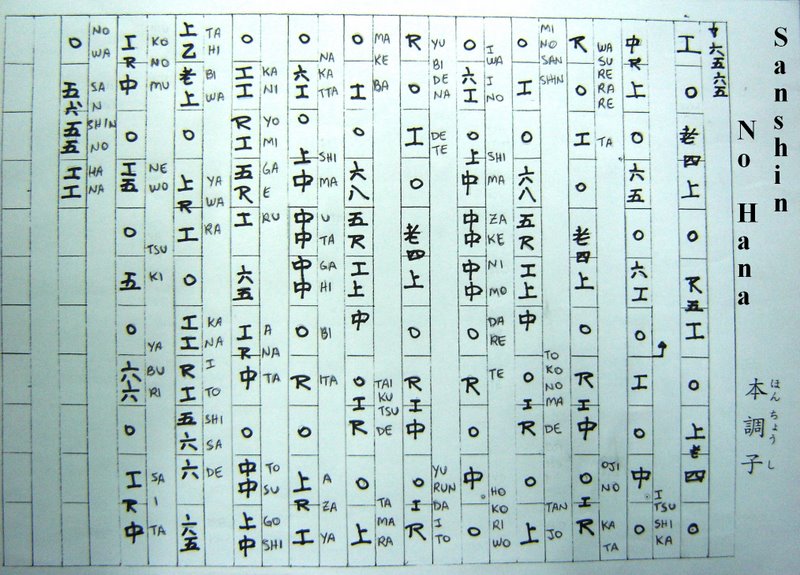 Sanshin
No Hana
本調子
ほんちょうし
中六五六五
工○老四上○尺五工○上老四○
I TSU SHI KA
中尺上○六五○六工○工○中○
WA SU RE RA RE TA OJI NO KA TA
尺○工○老四上○尺工中○工尺
MI NO SAN SHIN TO KO NO MA DE TAN JO
○工○六八五尺工上中○工尺○上
I WA I NO SHI MA ZA KE NI MO DA RE TE HO KO RI WO
○六工○上中中中中中○尺○中○
YU BI DE NA DE TE YU RUN DA I TO
尺○工○老四上○尺工中○工尺
MA KE BA TAI KU TSU DE TA MA RA
○工○六八五尺工上中○工尺○上
NA KA TTA SHI MA U TA GA HI BI ITA A ZA YA
○六工○上中中中中中○尺○上尺工
KA NI YO MI GA E RU A NA TA TO SU GO SHI
○工工尺工五尺工六五工尺中○中中上中
TA HI BI WA YA WA RA KA NA I TO SHI SA DE
上乙老上○上尺工○工工尺工五六六六五
KO NO MU NE WO TSU KI YA BU RI SA I TA
工尺中○工五○五○六六○工尺中
NO WA SA N SHIN NO HA NA
○五六五五工工